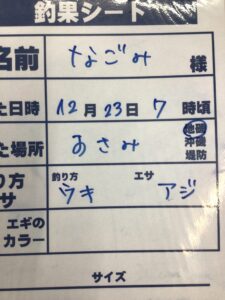 釣果シート
名前 なごみ 様
た日時 12月23日 7時頃
た場所 あさみ 地磯
沖磯
堤防
り方 釣り方 ウキ エサ アジ
サ
エギの
カラー
サイズ